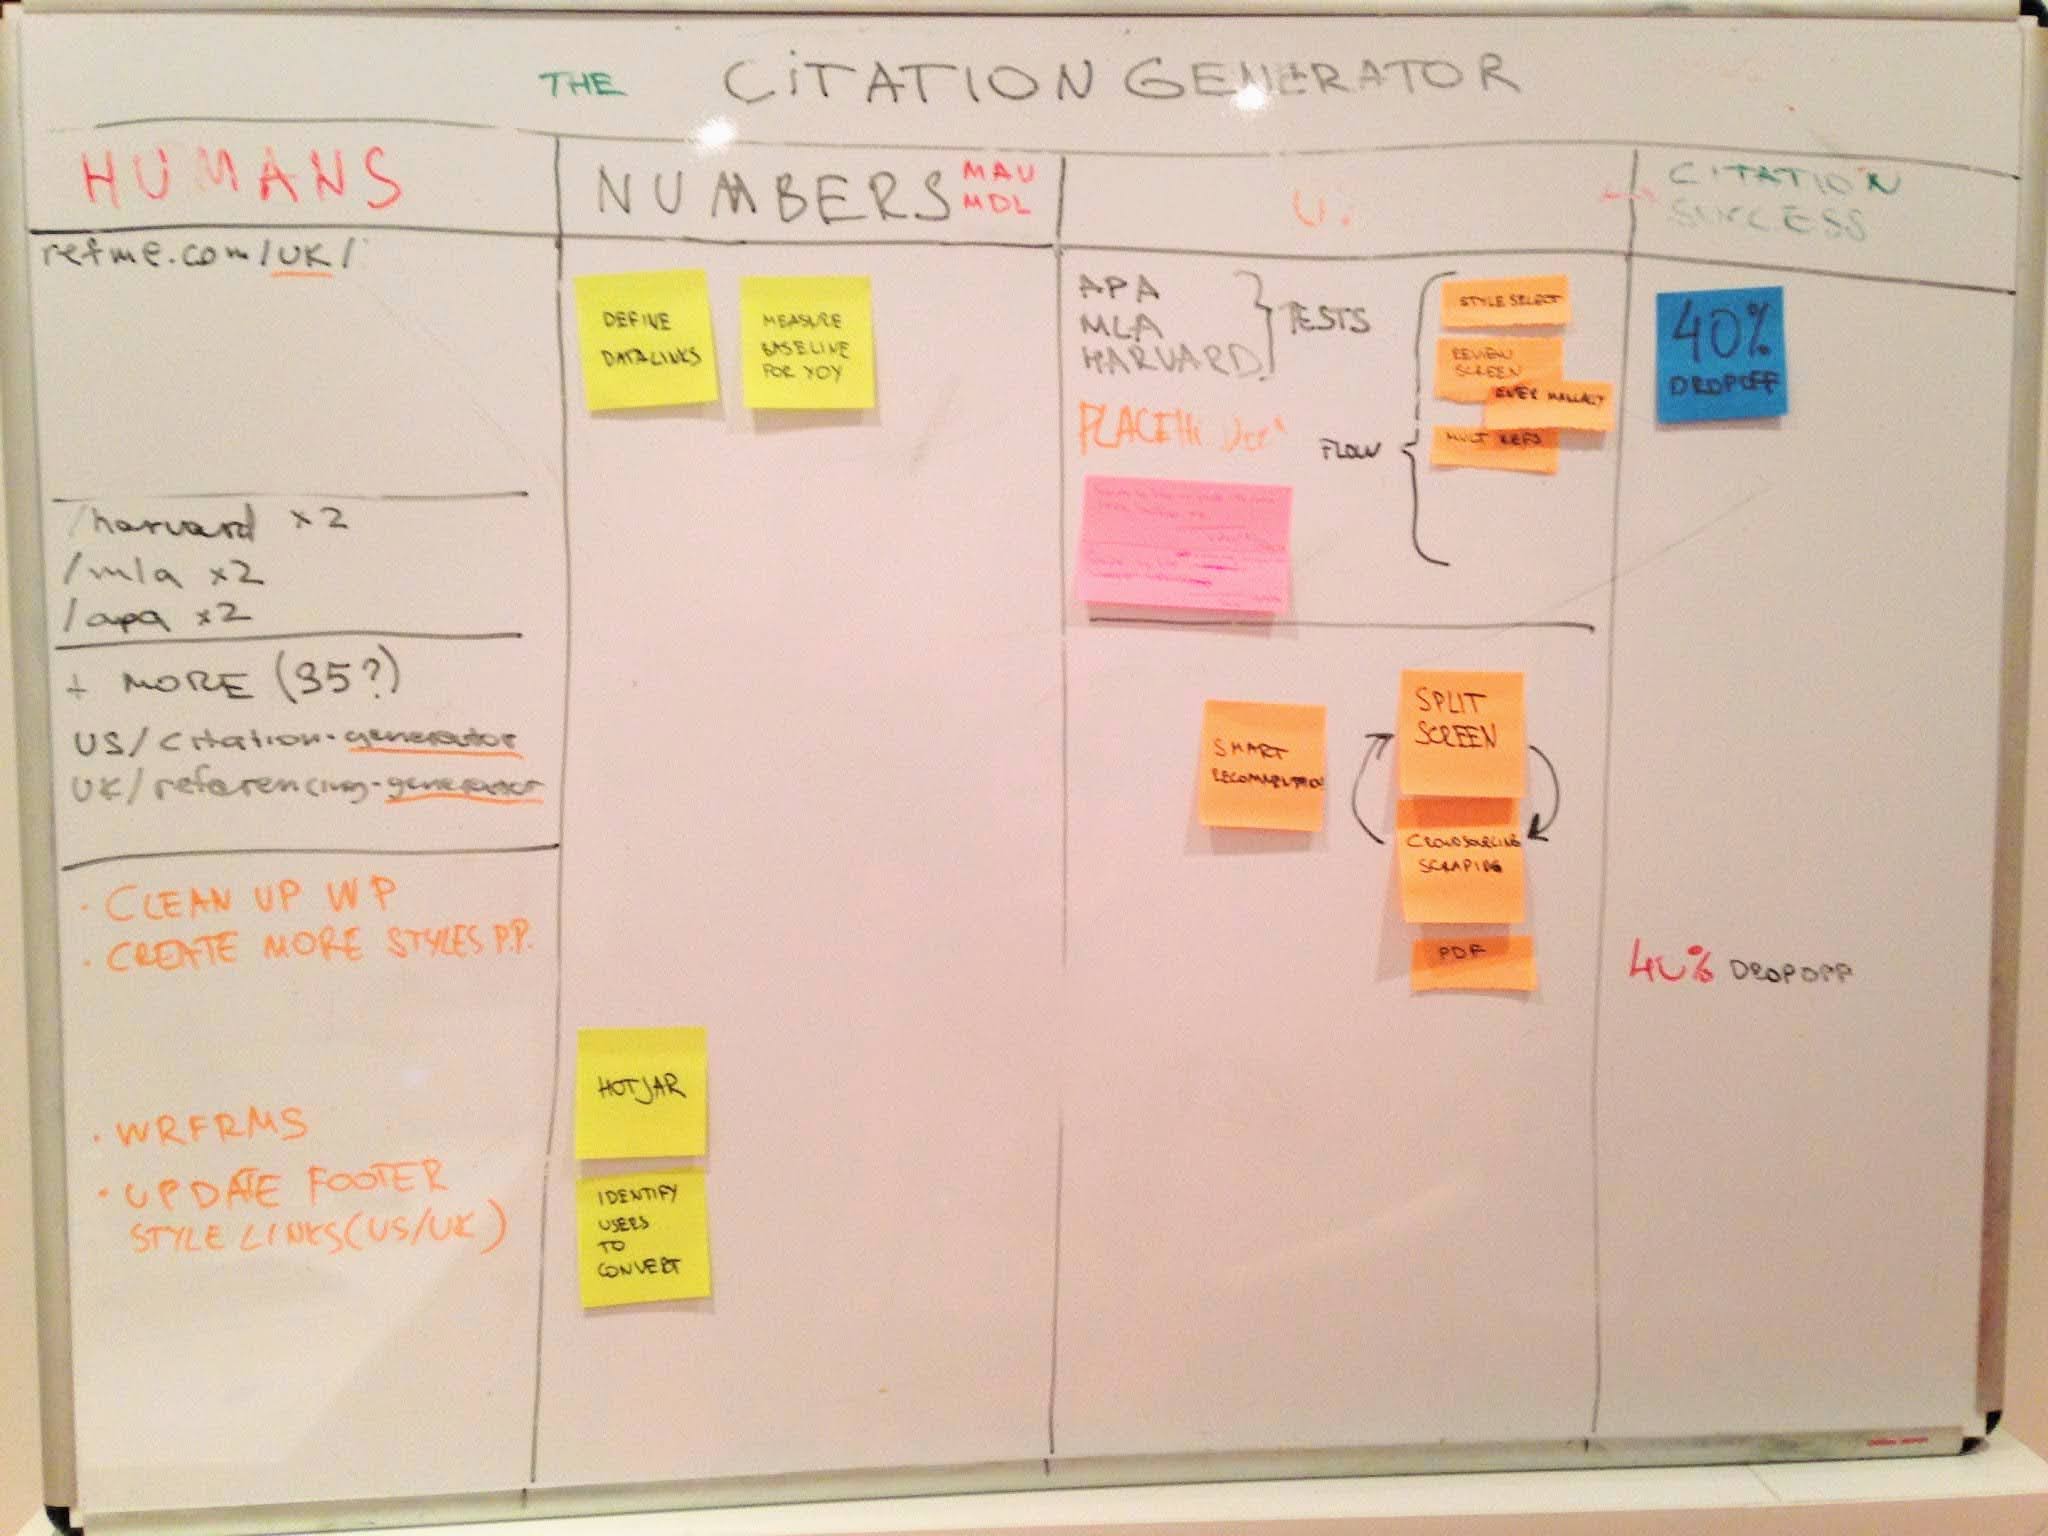 THE CITATION GENERATOR
HUMANS
refme.com/UK/
/harvard x2
/mla x2
/apa x2
+ MORE (35?)
US/citation-generator
UK/referencing-generator
· CLEAN UP WP
· CREATE MORE STYLES P.P.
· WRFRMS
· UPDATE FOOTER
STYLE LINKS (US/UK)
NUMBERS
MAU
MDL
DEFINE
DATALINKS
MEASURE
BASELINE
FOR YOY
HOTJAR
IDENTIFY
USERS
TO
CONVERT
APA
MLA
HARVARD
TESTS
FLOW
STYLE SELECT
REVIEW
SCREEN
MULT REFS
SMART
SPLIT
SCREEN
CROWDSOURCING
SCRAPING
PDF
CITATION
SUCCESS
40%
DROPOFF
40% DROPOFF